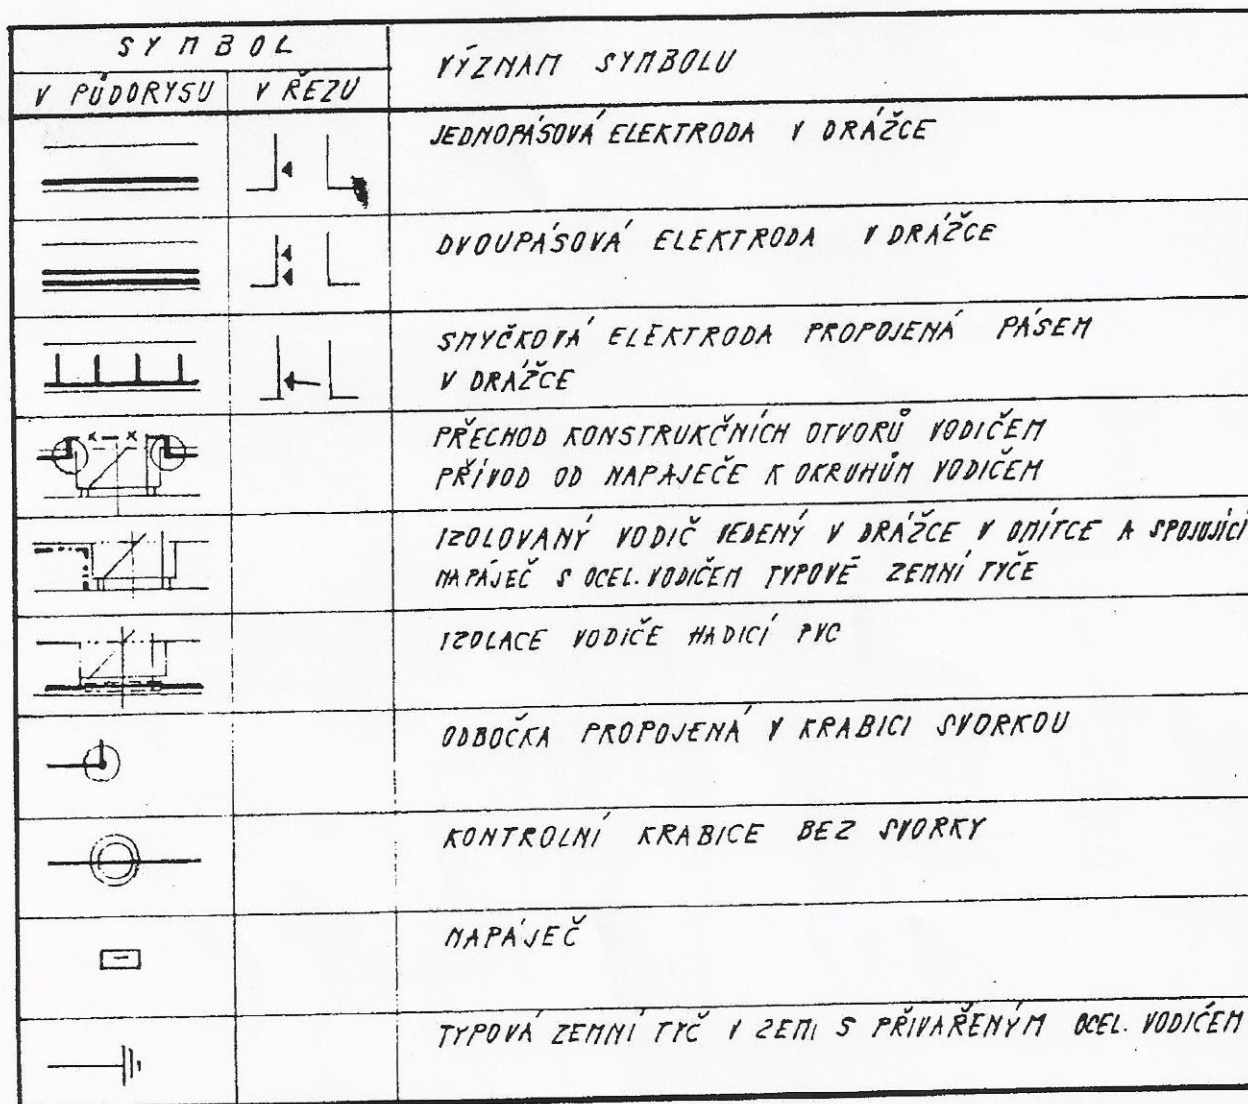 SYMBOL
VÝZNAM SYMBOLU
V PŮDORYSU
V ŘEZU
JEDNOPÁSOVÁ ELEKTRODA V DRÁŽCE
DVOUPÁSOVÁ ELEKTRODA V DRÁŽCE
SMYČKOVÁ ELEKTRODA PROPOJENÁ PÁSEM
V DRÁŽCE
PŘECHOD KONSTRUKČNÍCH OTVORŮ VODIČEM
PŘÍVOD OD NAPAJEČE K OKRUHŮM VODIČEM
IZOLOVANÝ VODIČ VEDENÝ V DRÁŽCE V OMÍTCE A SPOJUJÍCÍ
NAPÁJEČ S OCEL. VODIČEM TYPOVÉ ZEMNÍ TYČE
IZOLACE VODIČE HADICÍ PVC
ODBOČKA PROPOJENÁ V KRABICI SVORKOU
KONTROLNÍ KRABICE BEZ SVORKY
NAPÁJEČ
TYPOVÁ ZEMNÍ TYČ V ZEMI S PŘIVAŘENÝM OCEL. VODIČEM